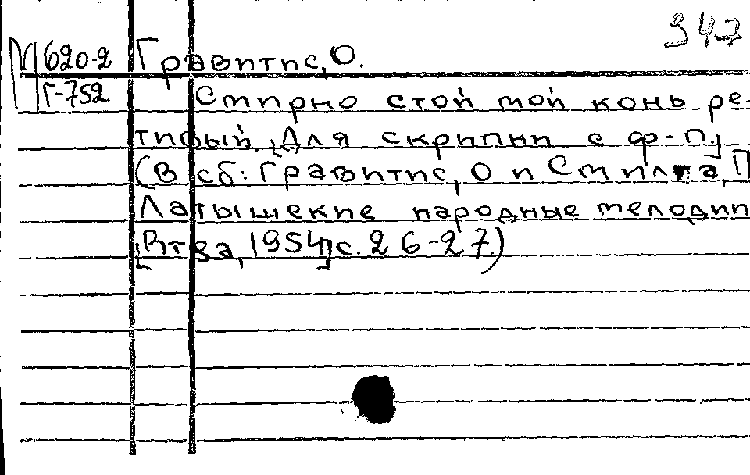 347
М 620-2 Гравитис, О.
Г-752
Смирно стой мой конь ре-
тивый. [Для скрипки с ф-п.]
(В сб: Гравитис, О и Смилга, П
Латышские народные мелодии
[Рига, 1954] с. 26-27)